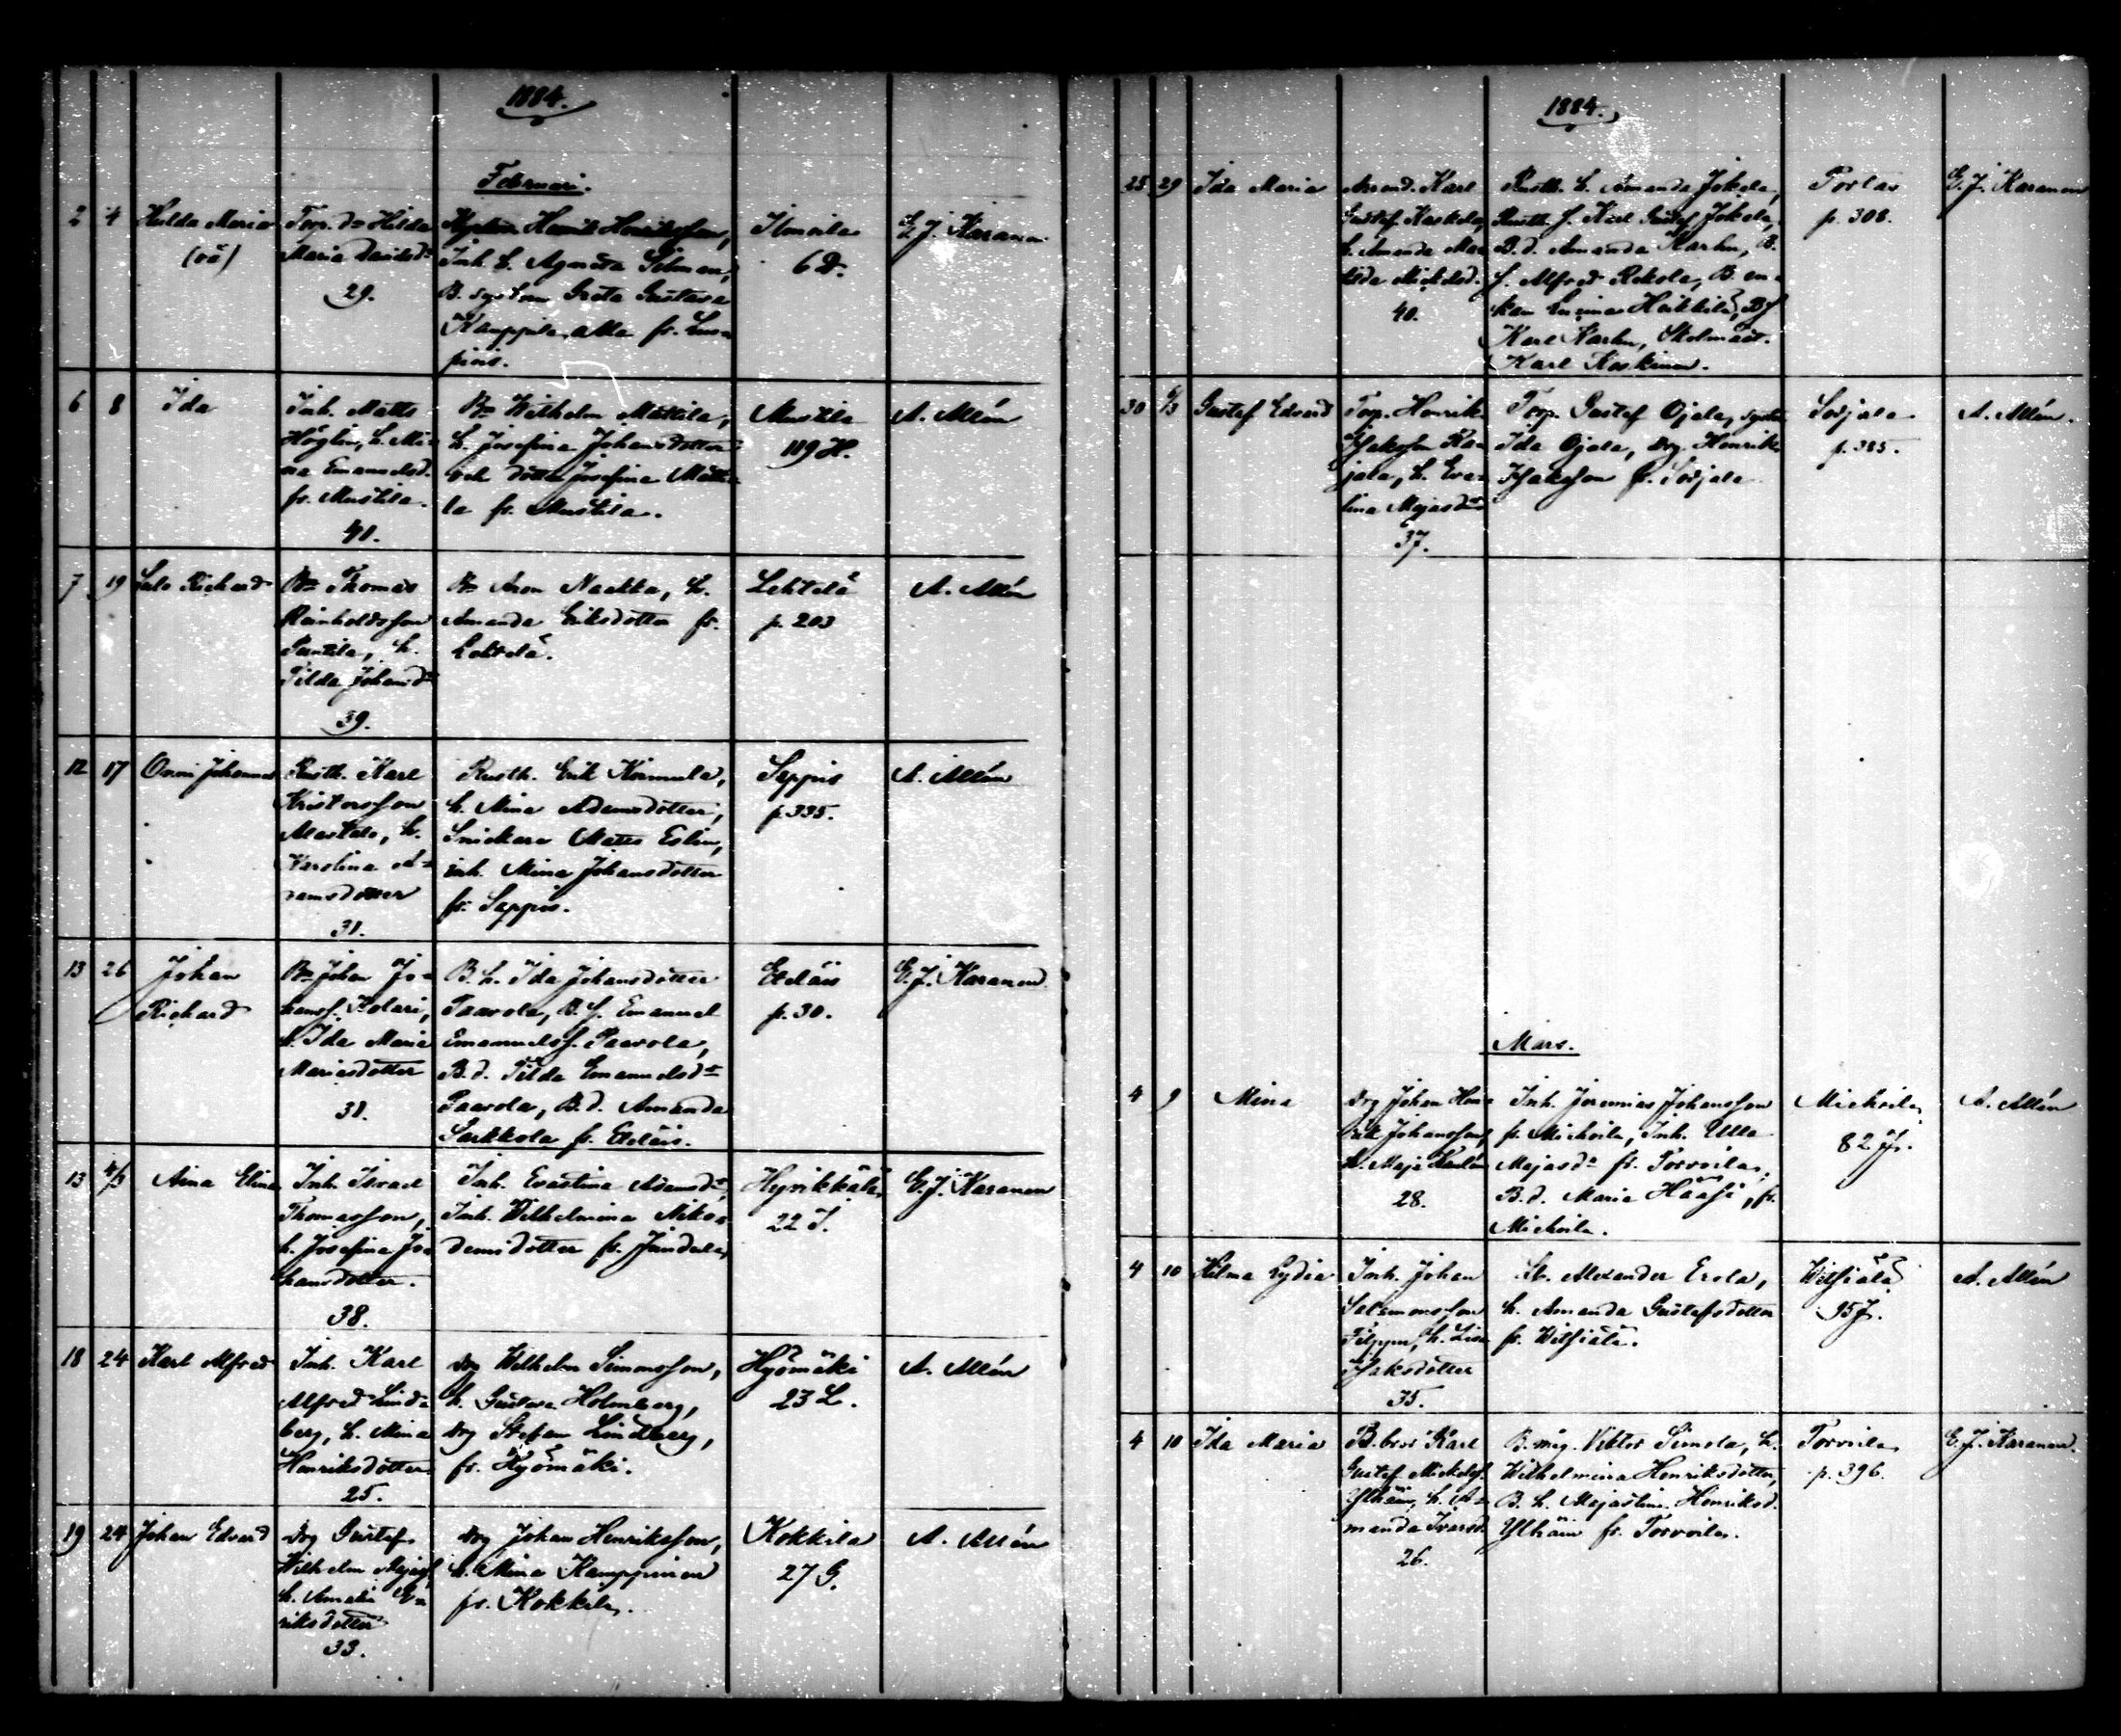 1884.
Februari.
2 4 Hulda Maria (oä)
Torp. dr Hilda
Maria Davidsdr
29.
Henrik Henriksson,
Inh. h. Agneta Silman,
B. system Greta Gustava
Kauppila, alla fr.
pois.
6 D.
E. J. Karanen
6 8 Ida
Inh. Matts
Höglin, h. Mi-
na Emanuelsd.
fr. Mustila.
41.
Bn Wilhelm Mattila,
h. Josefina Johansdotter
och dottr. Josefina Matti-
la fr. Mustila.
Mustila
119 H.
A. Allén
7 19 Salo Richard
Bn Thomas
Reinholdsson
Penttila, h.
Tilda Johansdr
39.
Bn Aron Nackka, h.
Amanda Eriksdotter fr.
Lehtelä.
Lehtelä
p. 203
A. Allén
12 17 Onni Johannes
Rusth. Karl
Kristersson
h.
Karolina A-
damsdotter
31.
Rusth. Erik Koimula,
h. Mina Adamsdotter,
Snickare Matts Eslin,
inh. Mina Johansdotter
fr. Seppis.
Seppis
p. 335.
A. Allén
13 26 Johan
Richard
Bn Johan Jo-
hanss. Kolari,
h. Ida Maria
Mariasdotter
31.
B. h. Ida Johansdotter
Paavola, B. S. Emanuel
Emanuelss. Paavola,
B. d. Tilda Emanuelsdr
Paavola, B. d. Amanda
Sarkkola fr. Eteläis.
Eteläis
p. 30.
E. J. Karanen
13 4/3 Aina Elina
Inh. Israel
Thomasson,
h. Josefina Jo-
hansdotter.
38.
Inh. Evastina Adamsdr,
Inh. Wilhelmina Niko-
demisdotter fr. Jundala,
Hyrikkälä
22 I.
E. J. Karanen
18 24 Karl Alfred
Inh. Karl
Alfred Lind-
berg, h. Mina
Henriksdotter
25.
Drg Wilhelm Simonsson,
h. Gustava Holmberg,
Drg Stefan Lindberg,
fr. Hyömäki.
Hyömäki
23 L.
A. Allén
19 24 Johan Edvard
Drg Gustaf
Wilhelm Majass.
h. Amalia E-
riksdotter
33.
Drg Johan Henriksson,
h. Mina Kamppinen
fr. Kokkila.
Kokkila
27 G.
A. Allén
1884.
25 29 Ida Maria
Arrend. Karl
Gustaf Kaskela,
h. Amanda Ma-
tilda Mickelsd.
40.
Rusth. h. Amanda Jokela,
Rusth. S. Karl Gustaf Jokela,
B. d. Amanda Karhu, B.
S. Alfred Rekola, B. en-
kan Lovina Heikkilä, B. S.
Karl Karhu, Skolmäst.
Karl Koskinen.
Portas
p. 308.
E. J. Karanen
30 6/3 Gustaf Edvard
Torp. Henrik
Isaksson Ka-
jala, h. Eve-
lina Majasdr
37.
Torp. Gustaf Ojala, syster
Ida Ojala, drg. Henrik
Isaksson fr. Sorjala
Sorjala
p. 385.
A. Allén.
Mars.
4 9 Mina
Drg Johan Hen-
rik Johansson,
h. Maja
28.
Inh. Jeremias Johansson
fr. Michoila, Inh. Ulla
Majasdr fr. Torvoila,
B. d. Maria Haasi, fr.
Michoila.
Michoila
82
A. Allén
4 10 Hilma Lydia
Inh. Johan
Salomonsson
Filppu, h. Lisa
Isaksdotter
35.
Alexander Erola,
h. Amanda Gustafsdotter
fr. Witsiälä.
Witsiälä
95 J.
A. Allén
4 10 Ida Maria
B. bror Karl
Gustaf Mickelss.
Ylhäin, h. A-
manda Ivarsd.
26.
B. måg. Viktor Simola, h.
Wilhelmina Henriksdotter,
B. h. Majastina Henriksd.
Ylhäin fr. Torvoila.
Torvoila
p. 396.
E. J. Karanen.